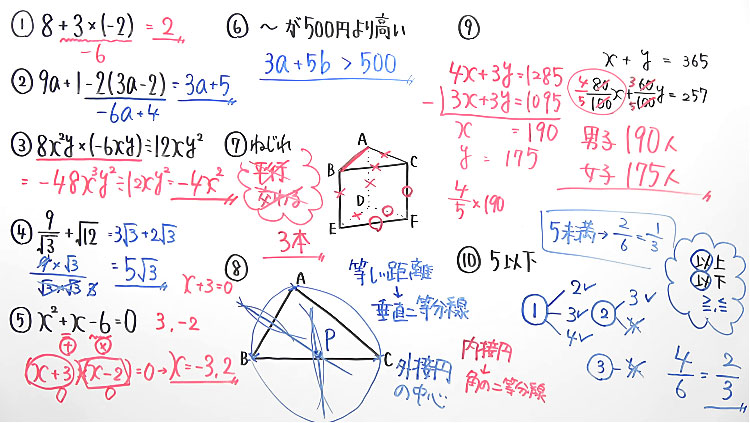 ① 8+3×(-2) = 2
-6
② 9a+1-2(3a-2) = 3a+5
-6a+4
③ 8x²y×(-6xy)÷12xy²
= -48x³y²÷12xy² = -4x²
④ 9/√3 + √12 = 3√3+2√3
9×√3/√3×√3 = 5√3
x+3=0
⑤ x²+x-6=0 3, -2
+ ×
(x+3)(x-2)=0 → x=-3, 2
0 0
⑥ 〜が500円より高い
3a+5b > 500
⑦ ねじれ
平行
交わる
3本
A
B
C
D
E
F
⑧
A
B
C
P
等しい距離
↓
垂直二等分線
外接円
の中心
内接円
↓
角の二等分線
⑨
x + y = 365
80/100 x + 60/100 y = 257
4/5 3/5
4x+3y=1285
- 3x+3y=1095
x = 190
y = 175
4/5×190
男子 190人
女子 175人
⑩ 5以下
5未満→2/6=1/3
以上
以下
≧,≦
① 2✓
3✓
4✓
② 3✓
4
③ - 4
4/6 = 2/3